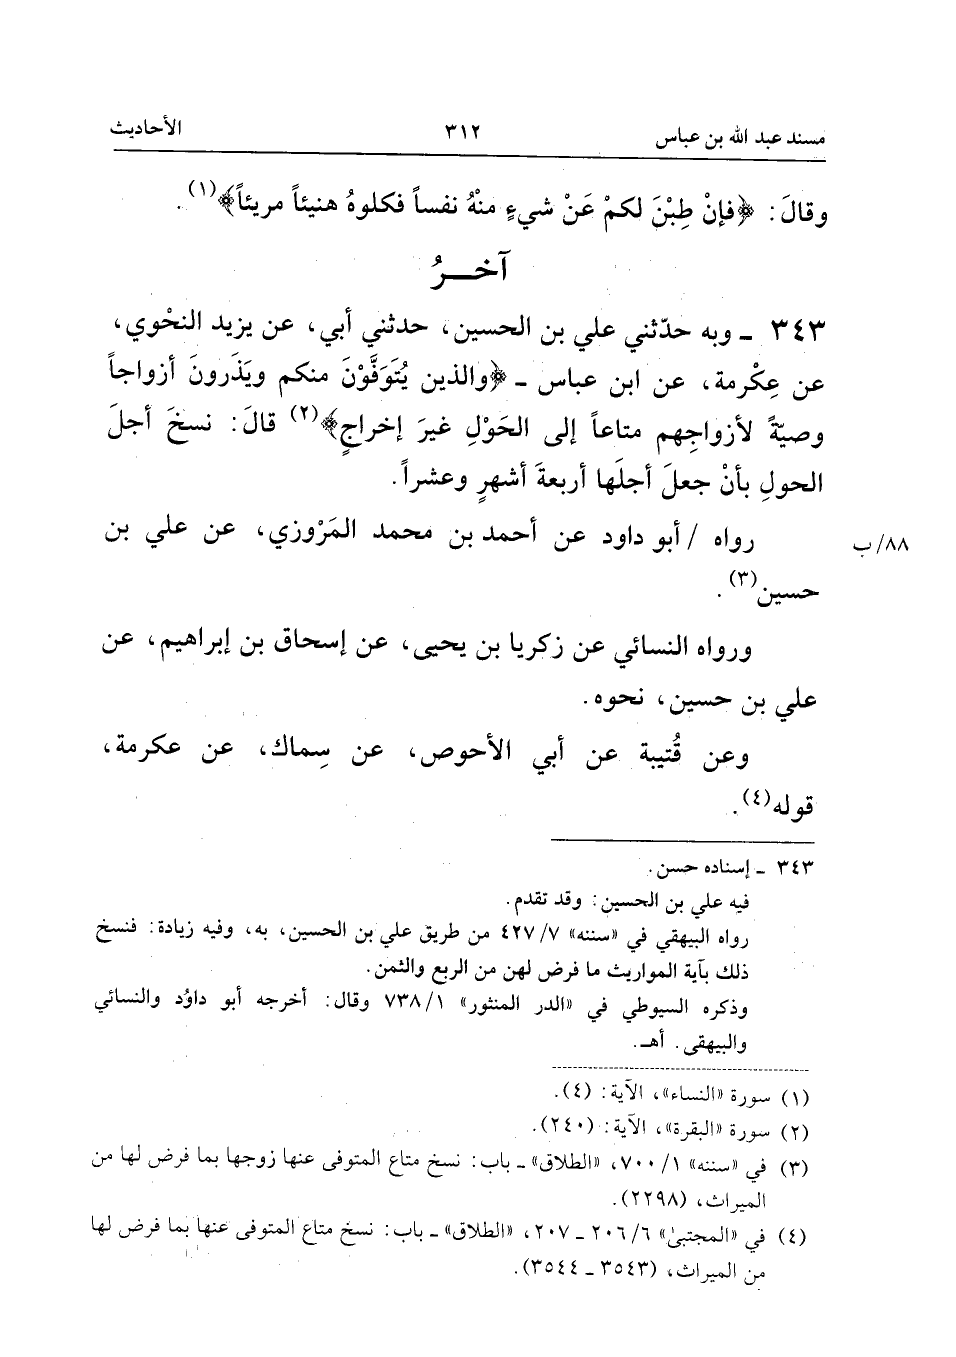 مسند عبد الله بن عباس ٣١٢ الأحاديث
وقالَ: ﴿فإنْ طِبْنَ لكمْ عَنْ شيءٍ منْهُ نفساً فكلوهُ هنيئاً مريئاً﴾(١).
آخـــرُ
٣٤٣ ـ وبه حدّثني علي بن الحسين، حدثني أبي، عن يزيد النحْوي،
عن عِكْرمة، عن ابن عباس ـ ﴿والذين يُتَوَفَّوْنَ منكم ويَذَرونَ أزواجاً
وصيّةً لأزواجِهم متاعاً إلى الحَوْلِ غيرَ إخراجٍ﴾(٢) قالَ: نسخَ أجلَ
الحولِ بأنْ جعلَ أجلَها أربعةَ أشهرٍ وعشراً.
رواه / أبو داود عن أحمد بن محمد المَرْوزي، عن علي بن
٨٨/ ب
حسين(٣).
ورواه النسائي عن زكريا بن يحيى، عن إسحاق بن إبراهيم، عن
علي بن حسين، نحوه.
وعن قُتيبة عن أبي الأحوص، عن سِماك، عن عكرمة،
قوله(٤).
٣٤٣ ـ إسناده حسن.
فيه علي بن الحسين: وقد تقدم.
رواه البيهقي في «سننه» ٧/ ٤٢٧ من طريق علي بن الحسين، به، وفيه زيادة: فنسخ
ذلك بآية المواريث ما فرض لهن من الربع والثمن.
وذكره السيوطي في «الدر المنثور» ١/ ٧٣٨ وقال: أخرجه أبو داوُد والنسائي
والبيهقى. أهـ.
(١) سورة «النساء»، الآية: (٤).
(٢) سورة «البقرة»، الآية: (٢٤٠).
(٣) في «سننه» ١/ ٧٠٠، «الطلاق» ـ باب: نسخ متاع المتوفى عنها زوجها بما فرض لها من
الميراث، (٢٢٩٨).
(٤) في «المجتبىٰ» ٦/ ٢٠٦ ـ ٢٠٧، «الطلاق» ـ باب: نسخ متاع المتوفى عنها بما فرض لها
من الميراث، (٣٥٤٣ ـ ٣٥٤٤).